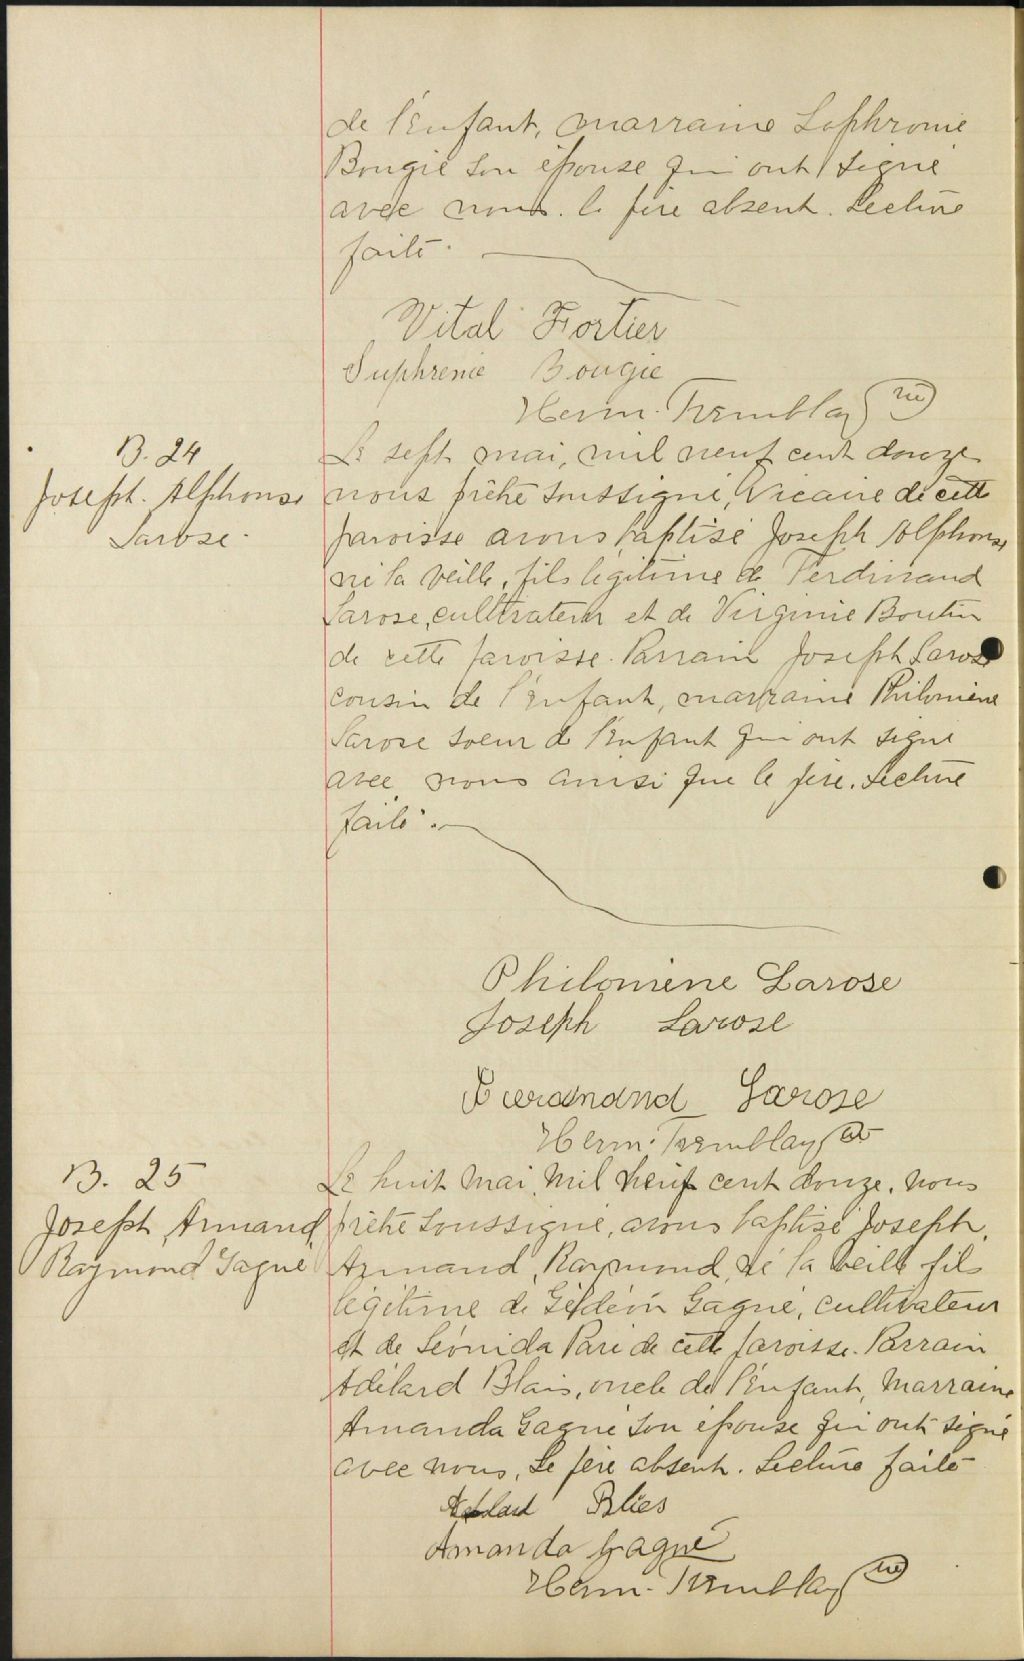 de l'Enfant, marraine Sophronie
Bougie son épouse qui ont signé
avec nous. le père absent. Lecture
faite.
Vital Fortier
Suphrenie Bougie
Herm. Tremblay ptre
B. 24
Joseph. Alphonse
Larose.
Le sept mai, mil neuf cent douze
nous prêtre soussigné, Vicaire de cette
paroisse avons baptisé Joseph Alphonse
né la veille, fils légitime de Ferdinand
Larose, cultivateur et de Virginie Boutin
de cette paroisse. Parrain Joseph Larose
cousin de l'Enfant, marraine Philomène
Larose soeur de l'Enfant qui ont signé
avec nous ainsi que le père. Lecture
faite.
Philomène Larose
Joseph Larose
Larose
Herm. Tremblay ptre
B. 25
Joseph, Armand,
Raymond Gagné
Le huit Mai, Mil Neuf cent douze, nous
prêtre soussigné, avons baptisé Joseph,
Armand, Raymond, né la veille fils
légitime de Gédéon Gagné, cultivateur
et de Léonida Paré de cette paroisse. Parrain
Adélard Blais, oncle de l'Enfant, Marraine
Amanda Gagné son épouse qui ont signé
avec nous, Le père absent. Lecture faite
Blies
Amanda Gagné
Herm. Tremblay ptre